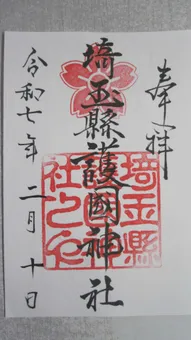 奉拝
埼玉縣護國神社
令和七年 二月 十日
埼玉縣
護國神
社之印